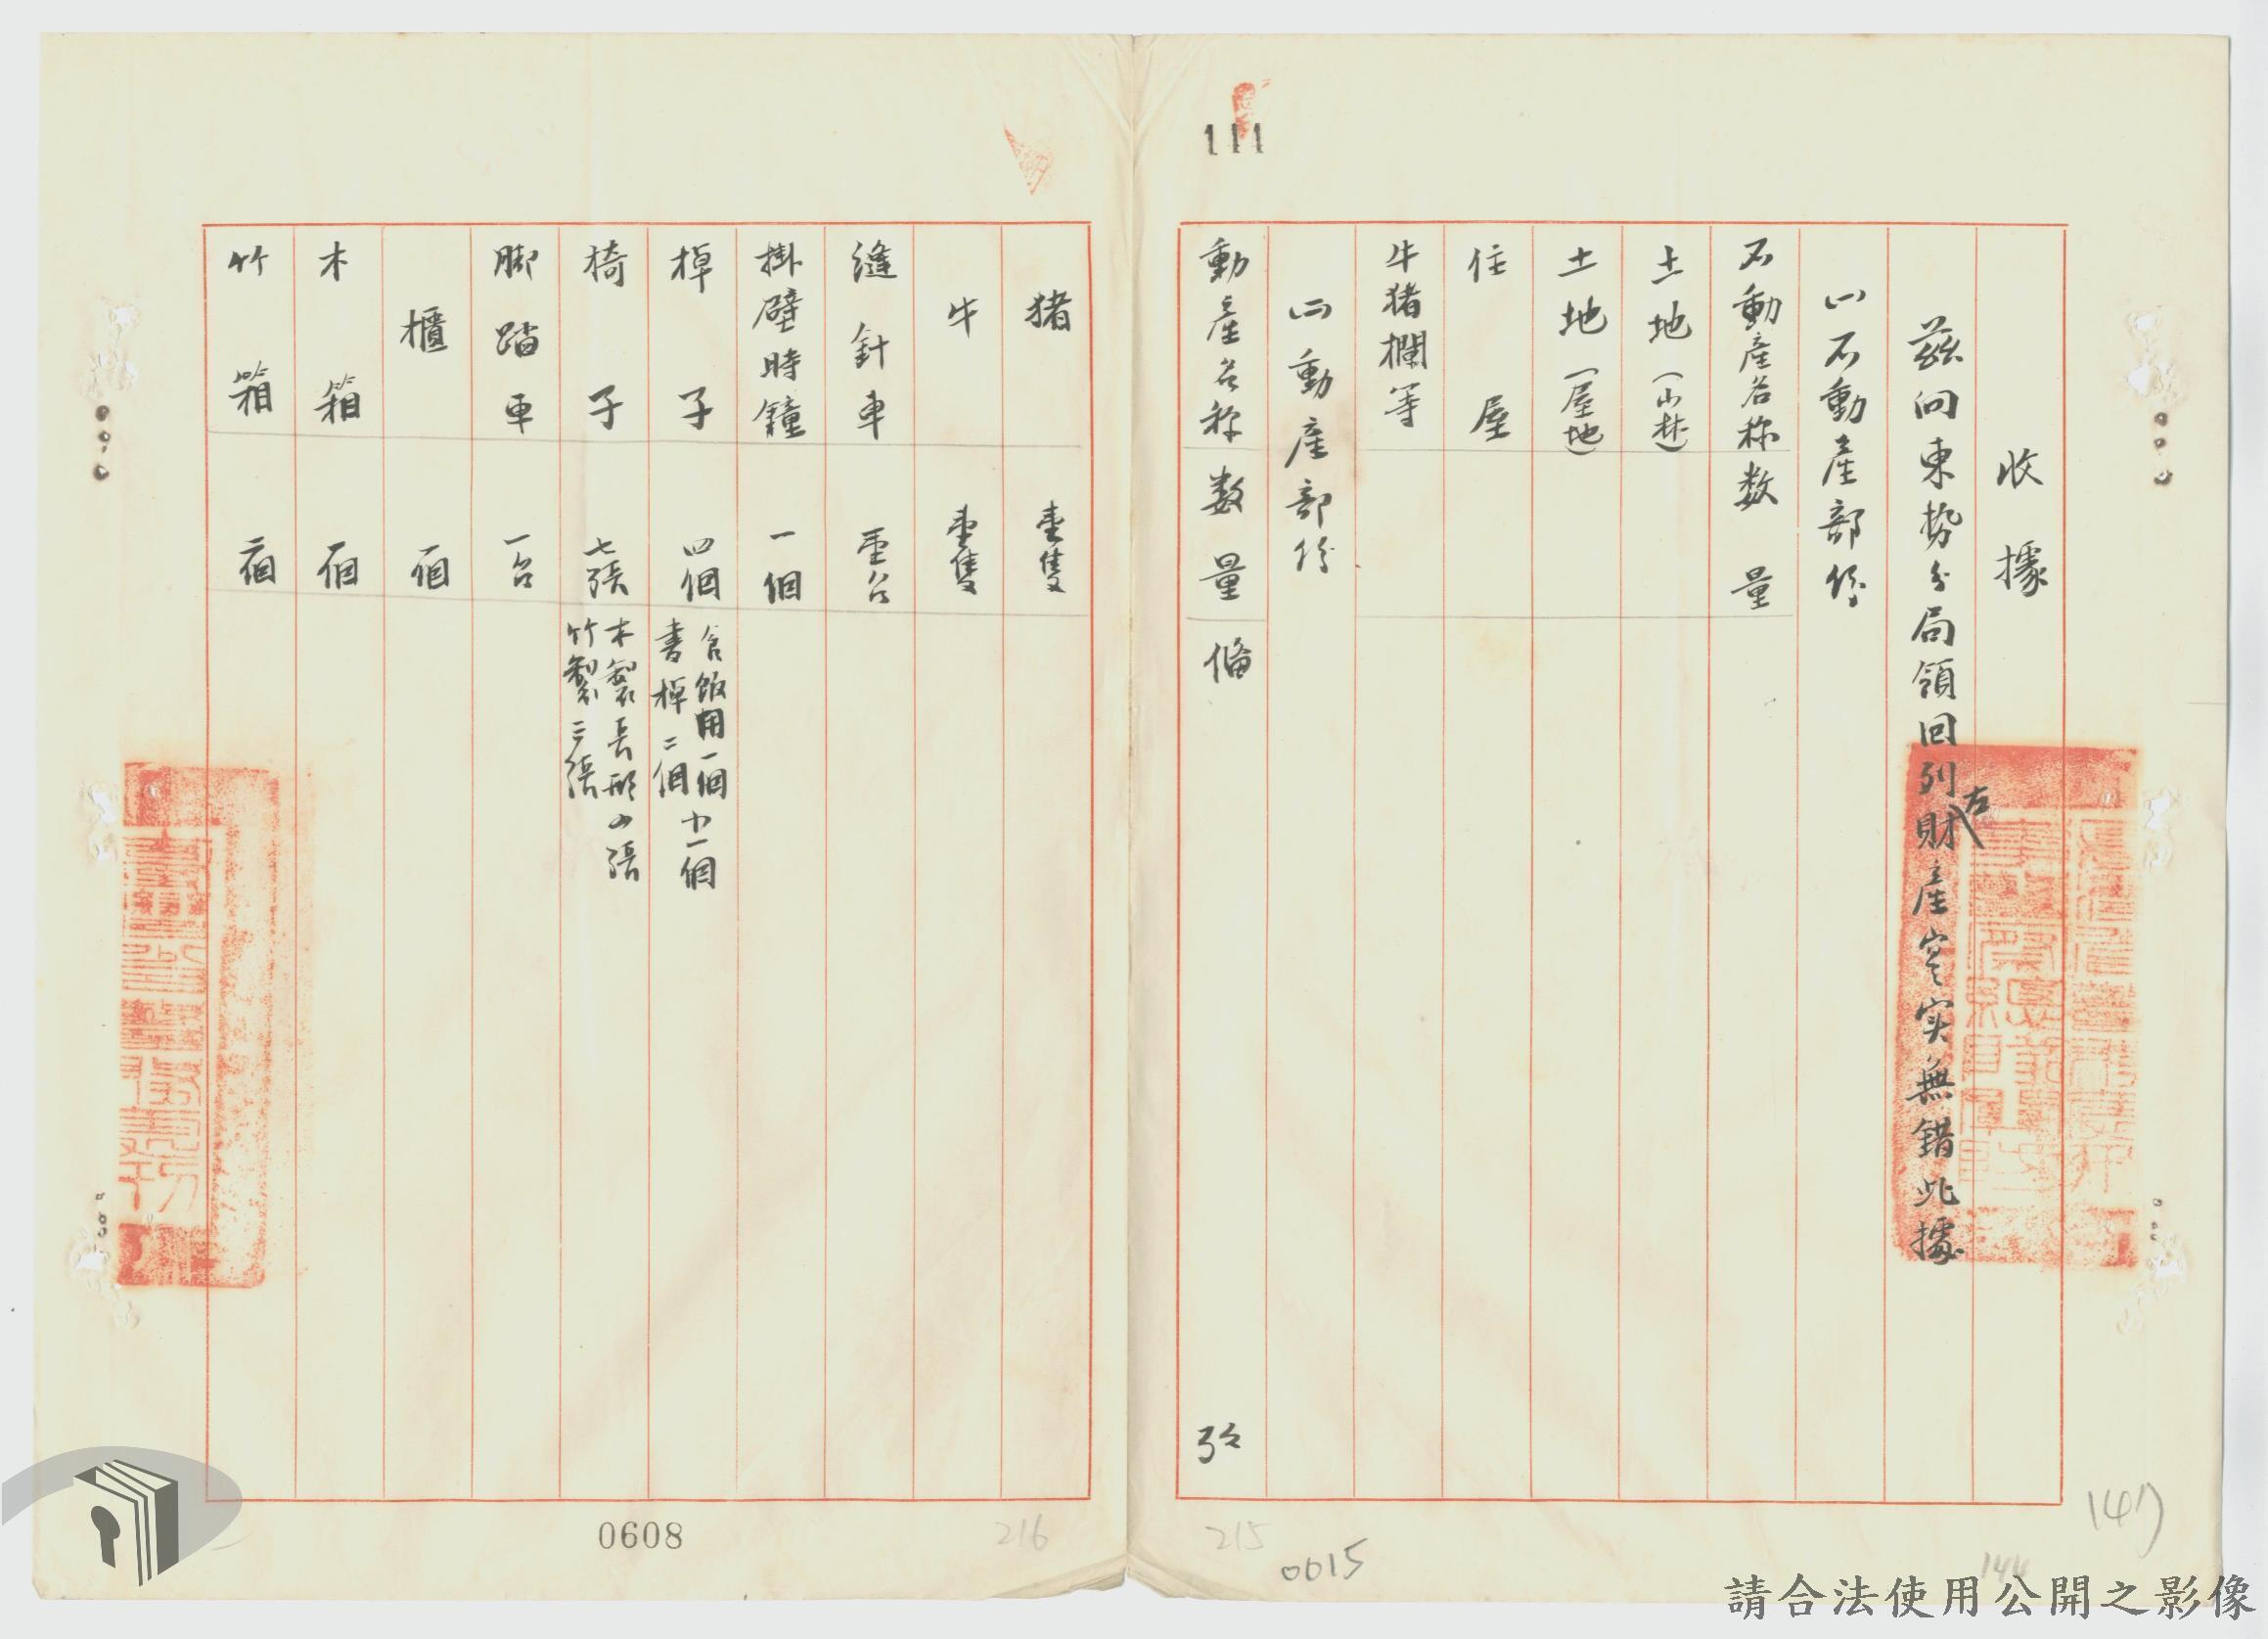 收據
茲向東勢分局領回左列財產寔实無錯此據
㈠不動產部份
不動產名称 数量
土地(山林)
土地(屋地)
住屋
牛猪欄等
㈡動產部份
動產名称 数量 備 攷
猪 壹隻
牛 壹隻
縫針車 壹台
掛壁時鐘 一個
棹子 四個 含飯用一個 小一個
書棹二個
椅子 七張 木製長形四張
竹製三張
脚踏車 一台
櫃 一個
木箱 一個
竹箱 二個
111
0608
216
215
0015
147
144
請合法使用公開之影像